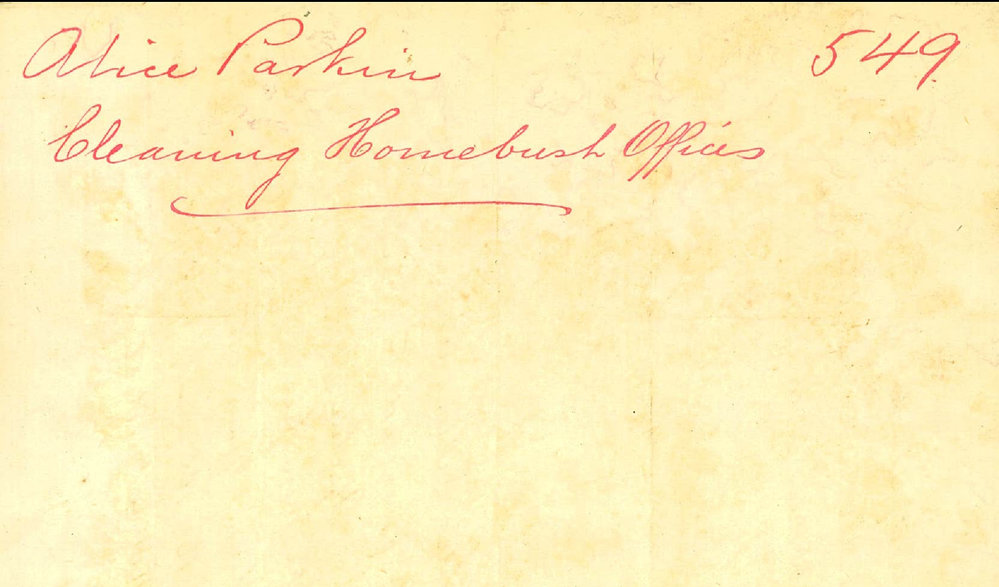 Alice Parkin 549
Cleaning Homebush Offices